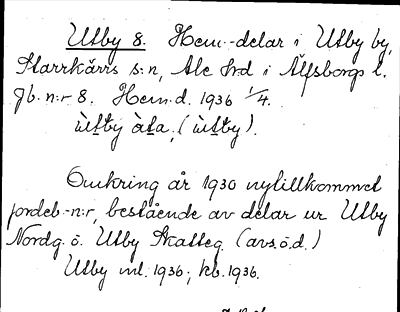 Utby 8. Hem.-delar i Utby by,
Starrkärrs s:n, Ale hrd i Älfsborgs l.
Jb. n:r 8. Hem.d. 1936 1/4.
ùtby àta, (ùtby).
Omkring år 1930 nytillkommet
jordeb.-n:r, bestående av delar ur Utby
Nordg. o. Utby Skatteg. (avs. ö.d.)
Utby ml. 1936; kb. 1936.